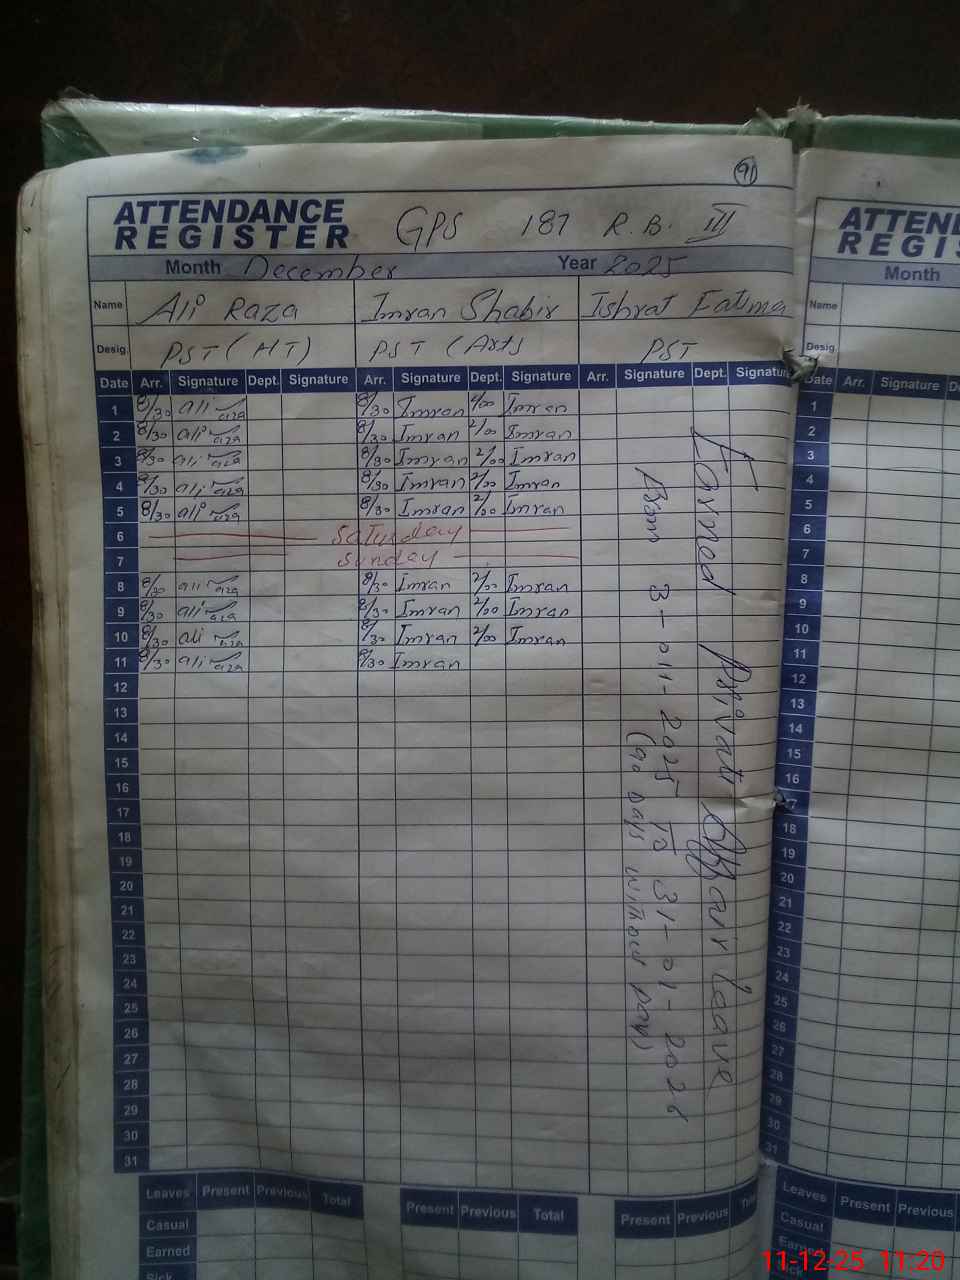 91
ATTENDANCE REGISTER GPS 187 R.B. III
Month December Year 2025
Name Ali Raza Imran Shabir Ishrat Fatima
Desig. PST (HT) PST (Arts PST
Date Arr. Signature Dept. Signature Arr. Signature Dept. Signature Arr. Signature Dept. Signature
1 8/30 ali aza 8/30 Imran 2/00 Imran
2 8/30 ali aza 8/30 Imran 2/00 Imran
3 8/30 ali aza 8/30 Imran 2/00 Imran
4 8/30 ali aza 8/30 Imran 2/00 Imran
5 8/30 ali aza 8/30 Imran 2/00 Imran
6 Saturday
7 Sunday
8 8/30 ali aza 8/30 Imran 2/00 Imran
9 8/30 ali aza 8/30 Imran 2/00 Imran
10 8/30 ali aza 8/30 Imran 2/00 Imran
11 8/30 ali aza 8/30 Imran
12
13
14
15
16
17
18
19
20
21
22
23
24
25
26
27
28
29
30
31
Earned Privat Affair leave
From 3-011-2025 To 31-01-2026
(90 Days without pay)
Leaves Present Previous Total Present Previous Total Present Previous
Casual
Earned
Sick
ATTEND
REGIS
Month
Name
Desig.
Date Arr. Signature
1
2
3
4
5
6
7
8
9
10
11
12
13
14
15
16
17
18
19
20
21
22
23
24
25
26
27
28
29
30
31
Leaves Present Previous
Casual
Earned
Sick
11-12-25 11:20